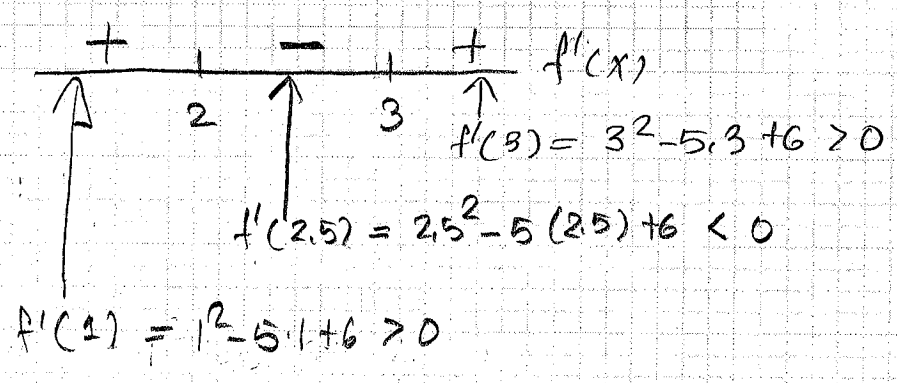 + - + f'(x)
2 3
f'(3) = 3²-5.3 +6 > 0
f'(2.5) = 2.5²-5 (2.5) +6 < 0
f'(1) = 1²-5.1+6 > 0